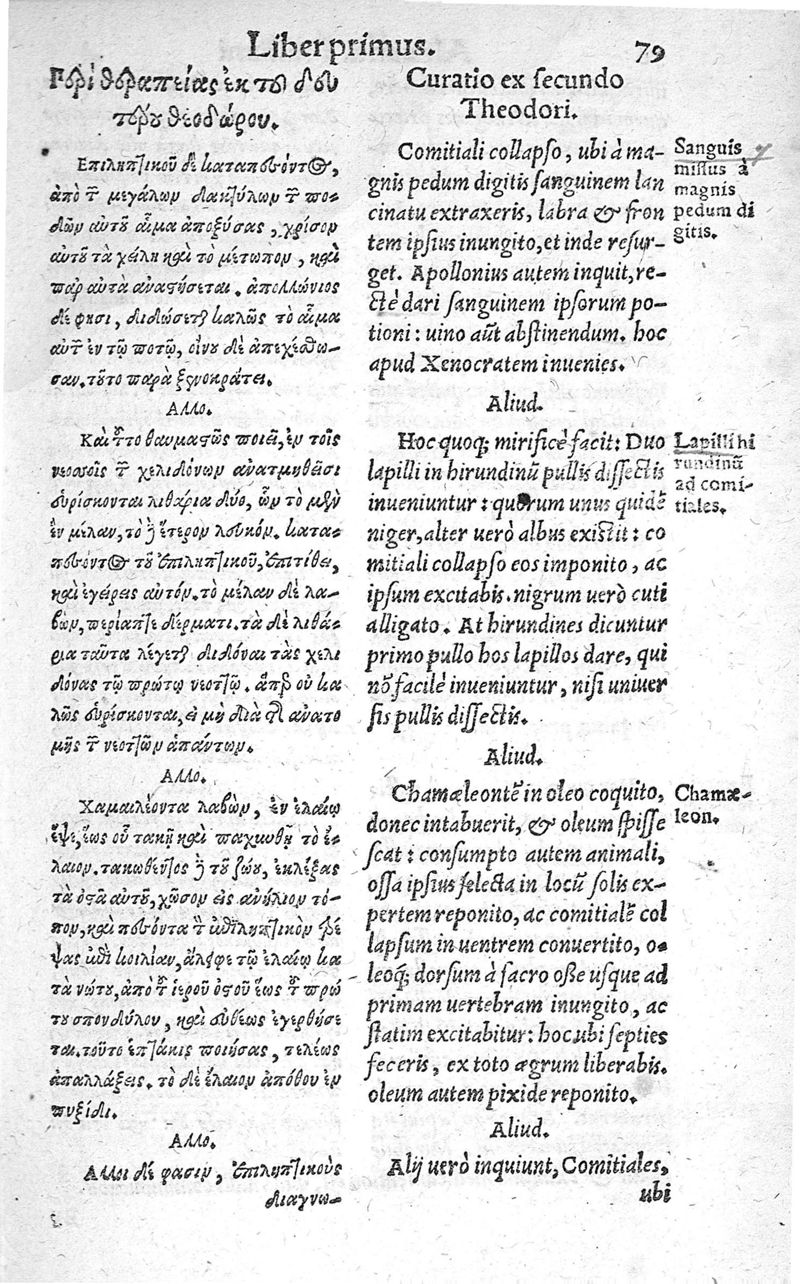 Liber primus. 79
Περὶ θεραπείας ἐκ τοῦ δευ
τέρου θεοδώρου.
Επιληπτικοῦ δὲ καταπεσόντος,
ἀπὸ τῶν μεγάλων δακτύλων τῶν πο-
δῶν αὐτοῦ αἷμα ἀποξύσας, χρῖσον
αὐτοῦ τὰ χείλη καὶ τὸ μέτωπον, καὶ
παρ αὐτὰ ἀναστήσεται. ἀπολλώνιος
δέ φησι, διδώσεται καλῶς τὸ αἷμα
αὐτῶν ἐν τῷ ποτῷ, οἴνου δὲ ἀπεχέσθω-
σαν. τοῦτο παρὰ ξενοκράτει.
Αλλο.
Καὶ τοῦτο θαυμαστῶς ποιεῖ, ἐν τοῖς
νεοσσοῖς τῶν χελιδόνων ἀνατμηθεῖσι
εὑρίσκονται λιθάρια δύο, ὧν τὸ μὲν
ἓν μέλαν, τὸ δὲ ἕτερον λευκόν. κατα-
πεσόντος τοῦ ἐπιληπτικοῦ, ἐπιτίθει,
καὶ ἐγείρεις αὐτόν. τὸ μέλαν δὲ λα-
βὼν, περίαπτε δέρματι. τὰ δὲ λιθά-
ρια ταῦτα λέγεται διδόναι τὰς χελι
δόνας τῷ πρώτῳ νεοττῷ. ἅπερ οὐ κα
λῶς εὑρίσκονται, εἰ μὴ διὰ τῆς ἀνατο
μῆς τῶν νεοττῶν ἁπάντων.
Αλλο.
Χαμαιλέοντα λαβὼν, ἐν ἐλαίῳ
ἕψε, ἕως οὗ τακῇ καὶ παχυνθῇ τὸ ἔ-
λαιον. τακωθέντος δὲ τοῦ ζώου, ἐκλέξας
τὰ ὀστᾶ αὐτοῦ, χῶσον εἰς ἀνήλιον τό-
πον, καὶ πεσόντα τὸν ἐπιληπτικὸν στρέ
ψας ἐπὶ κοιλίαν, ἄλειφε τῷ ἐλαίῳ κα
τὰ νώτου, ἀπὸ τοῦ ἱεροῦ ὀστοῦ ἕως τοῦ πρώ
του σπονδύλου, καὶ εὐθέως ἐγερθήσε
ται. τοῦτο ἑπτάκις ποιήσας, τελέως
ἀπαλλάξεις. τὸ δὲ ἔλαιον ἀπόθου ἐν
πυξίδι.
Αλλο.
Αλλοι δέ φασιν, ἐπιληπτικοὺς
διαγνω-
Curatio ex secundo
Theodori.
Comitiali collapso, ubi à ma-
gnis pedum digitis sanguinem lan
cinatu extraxeris, labra & fron
tem ipsius inungito, et inde resur-
get. Apollonius autem inquit, re-
ctè dari sanguinem ipsorum po-
tioni: uino aūt abstinendum. hoc
apud Xenocratem inuenies.
Aliud.
Hoc quoq; mirificè facit: Duo
lapilli in hirundinū pullis dissectis
inueniuntur: quorum unus quidē
niger, alter uerò albus existit: co
mitiali collapso eos imponito, ac
ipsum excitabis. nigrum uerò cuti
alligato. At hirundines dicuntur
primo pullo hos lapillos dare, qui
nō facilè inueniuntur, nisi uniuer
sis pullis dissectis.
Aliud.
Chamæleontē in oleo coquito,
donec intabuerit, & oleum spisse
scat: consumpto autem animali,
ossa ipsius selecta in locū solis ex-
pertem reponito, ac comitialē col
lapsum in uentrem conuertito, o-
leoq; dorsum à sacro osse usque ad
primam uertebram inungito, ac
statim excitabitur: hoc ubi septies
feceris, ex toto ægrum liberabis.
oleum autem pixide reponito.
Aliud.
Alij uerò inquiunt, Comitiales,
ubi
Sanguis
missus à
magnis
pedum di
gitis.
Lapilli hi
rundinū
ad comi-
tiales.
Chamæ-
leon.